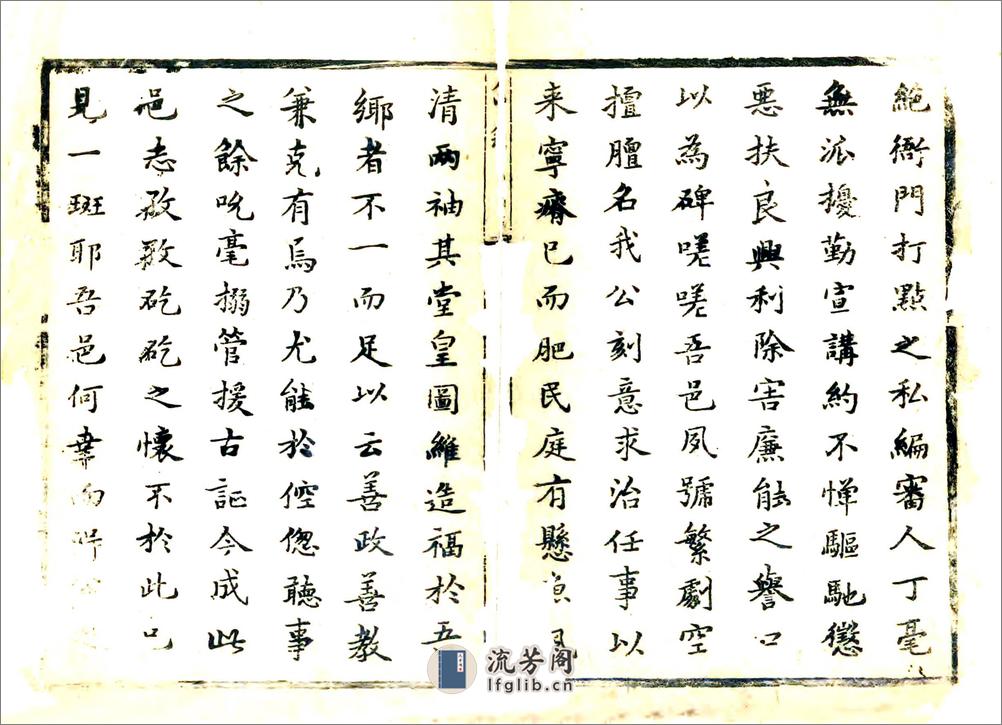 絕衙門打點之私編審人丁毫
無派擾勤宣講約不憚驅馳懲
惡扶良興利除害廉能之譽口
以為碑嗟嗟吾邑夙號繁劇空
擅膻名我公刻意求治任事以
来寧瘠已而肥民庭有懸魚風
清兩袖其堂皇圖維造福於吾
鄉者不一而足以云善政善教
兼克有焉乃尤能於倥偬聽事
之餘吮毫搦管援古証今成此
邑志孜孜矻矻之懷不於此已
見一斑耶吾邑何幸而得
流芳阁
lfglib.cn